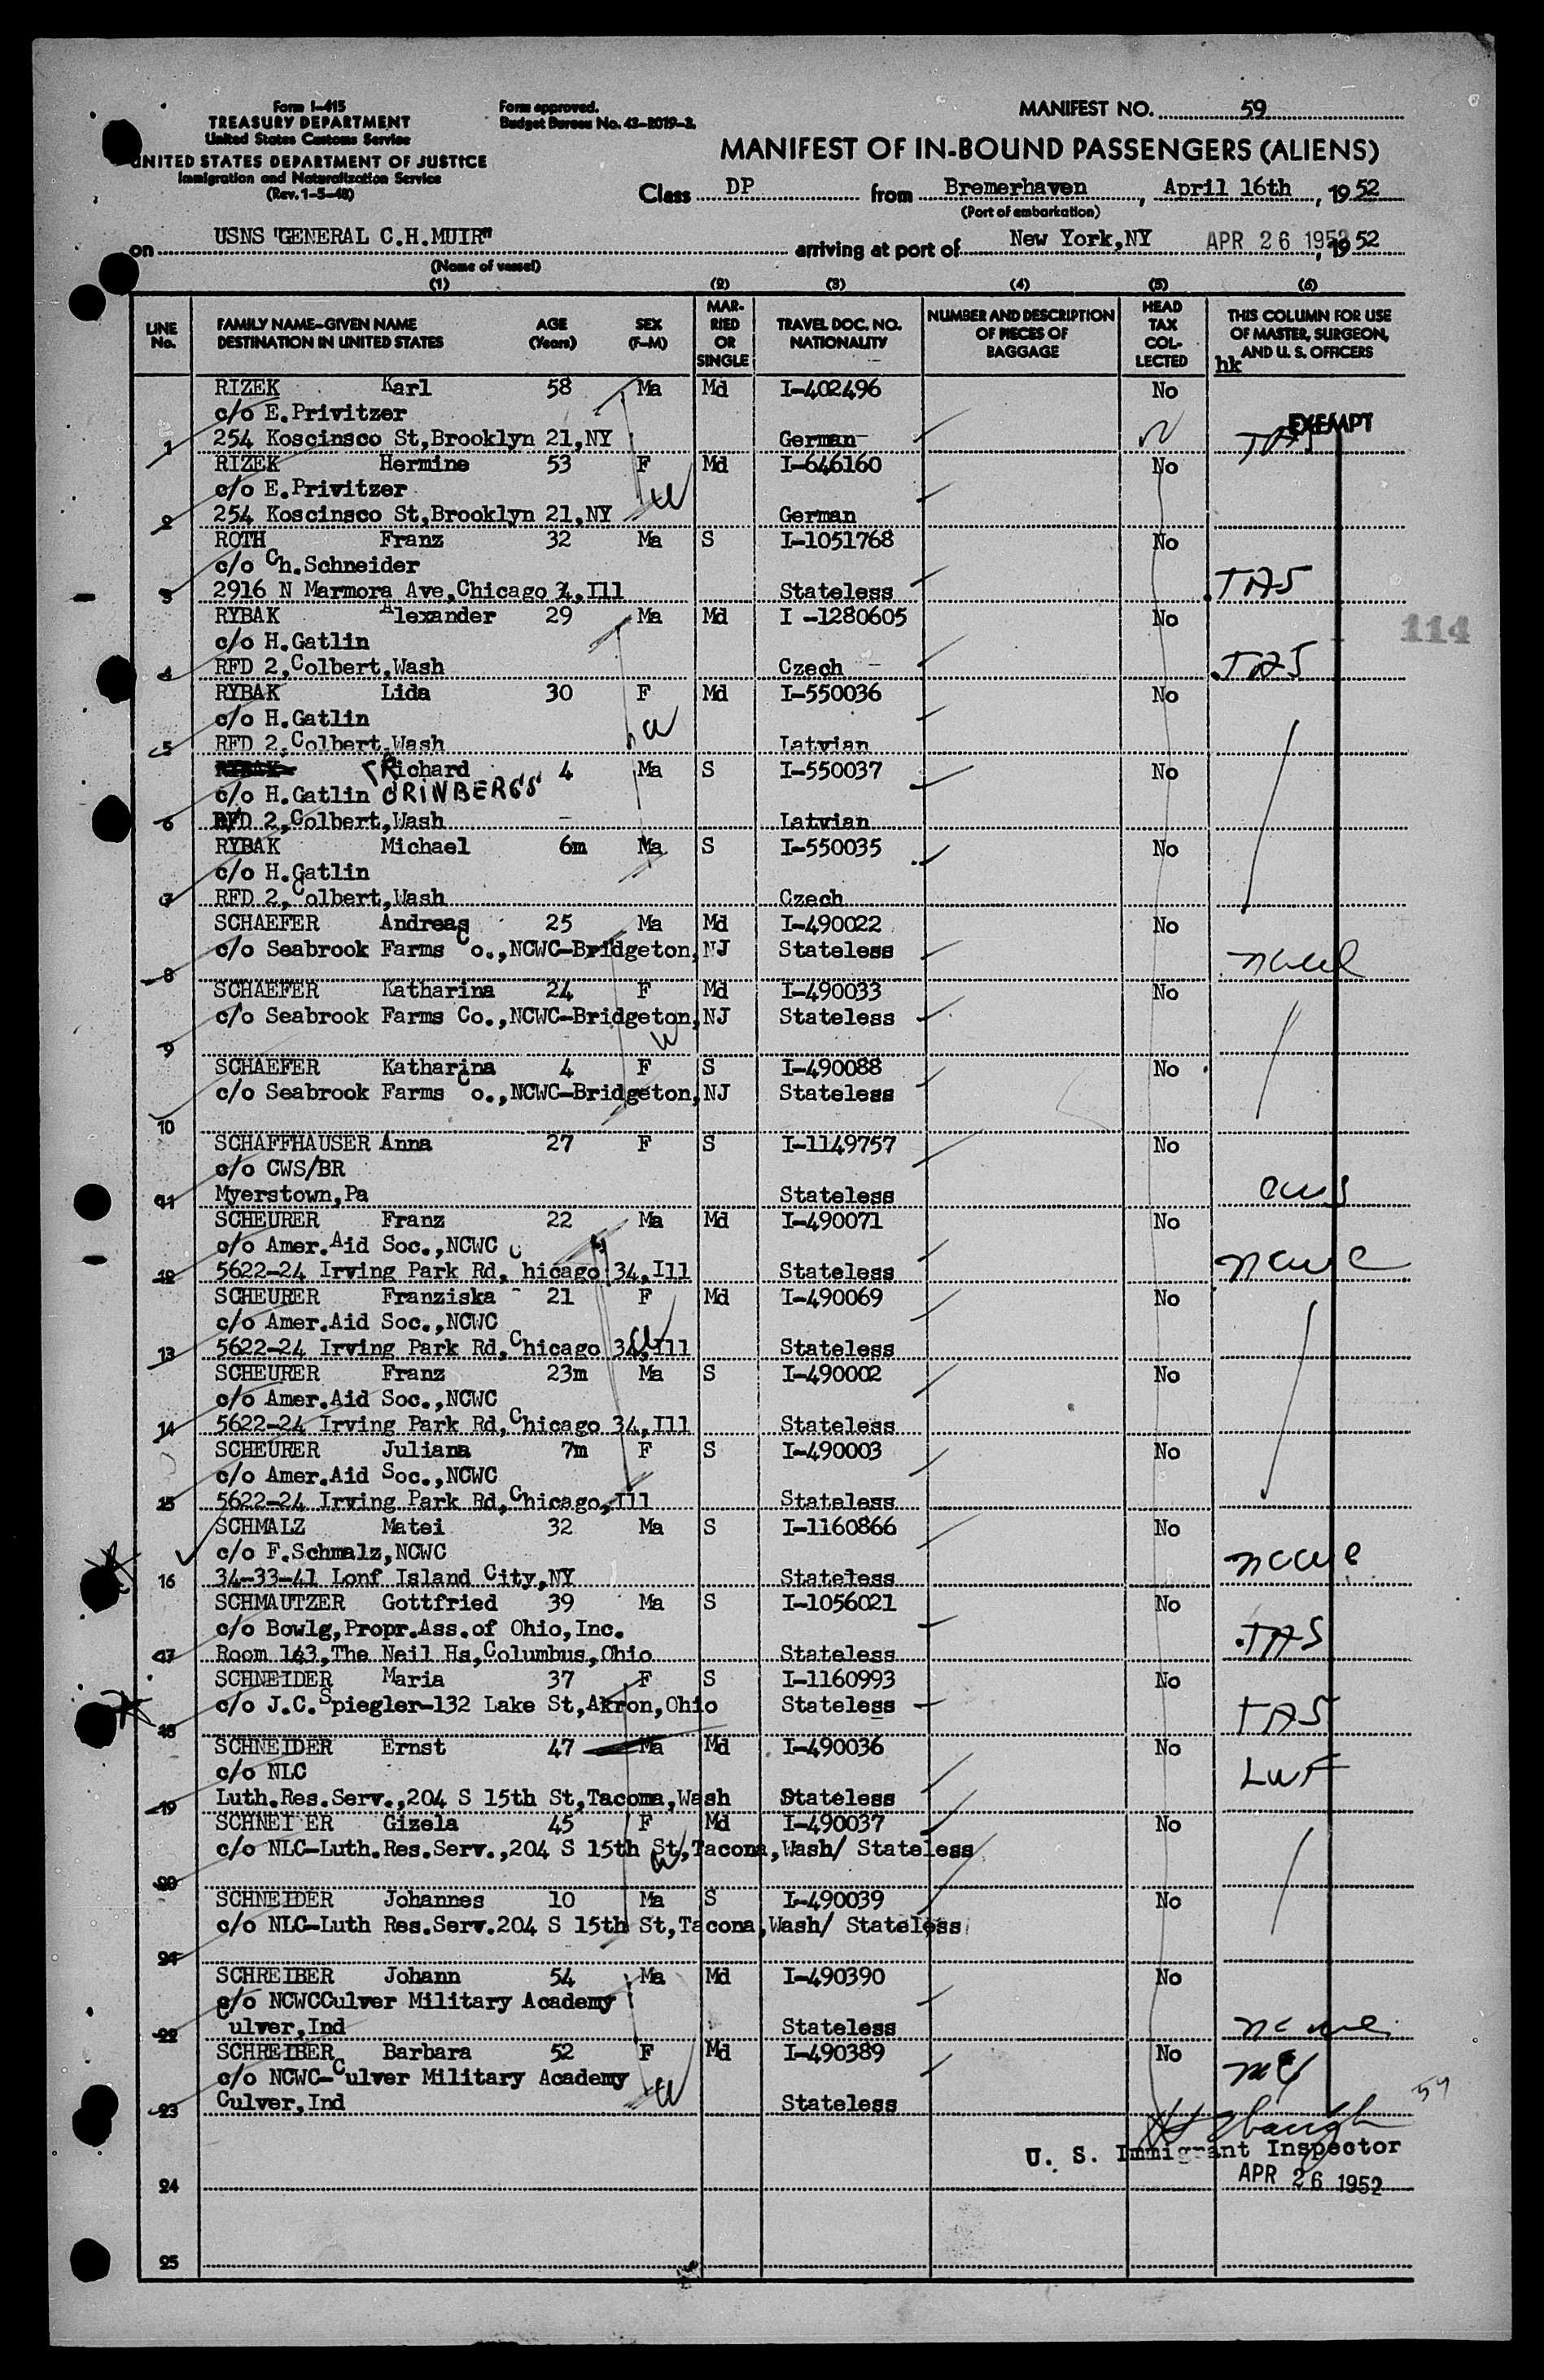 Form I-415
TREASURY DEPARTMENT
United States Customs Service
UNITED STATES DEPARTMENT OF JUSTICE
Immigration and Naturalization Service
(Rev. 1-5-48)
Form approved.
Budget Bureau No. 43-R019-2.
MANIFEST NO. 59
MANIFEST OF IN-BOUND PASSENGERS (ALIENS)
Class DP from Bremerhaven, April 16th, 1952
(Port of embarkation)
on USNS "GENERAL C.H.MUIR" arriving at port of New York,NY APR 26 1952, 1952
(Name of vessel)
(1) (2) (3) (4) (5) (6)
LINE No. FAMILY NAME-GIVEN NAME DESTINATION IN UNITED STATES AGE (Years) SEX (F-M) MARRIED OR SINGLE TRAVEL DOC. NO. NATIONALITY NUMBER AND DESCRIPTION OF PIECES OF BAGGAGE HEAD TAX COLLECTED THIS COLUMN FOR USE OF MASTER, SURGEON, AND U. S. OFFICERS
hk
RIZEK Karl 58 Ma Md I-402496 No
c/o E.Privitzer EXEMPT
1 254 Koscinsco St,Brooklyn 21,NY German TAS
RIZEK Hermine 53 F Md I-646160 No
c/o E.Privitzer
2 254 Koscinsco St,Brooklyn 21,NY German
ROTH Franz 32 Ma S I-1051768 No
c/o Ch.Schneider
3 2916 N Marmora Ave,Chicago Ill Stateless TAS
RYBAK Alexander 29 Ma Md I -1280605 No
c/o H.Gatlin 114
4 RFD 2,Colbert,Wash Czech TAS
RYBAK Lida 30 F Md I-550036 No
c/o H.Gatlin
5 RFD 2,Colbert,Wash Latvian
RYBAK Richard 4 Ma S I-550037 No
c/o H.Gatlin GRINBERGS
6 RFD 2,Colbert,Wash Latvian
RYBAK Michael 6m Ma S I-550035 No
c/o H.Gatlin
7 RFD 2,Colbert,Wash Czech
SCHAEFER Andreas 25 Ma Md I-490022 No
c/o Seabrook Farms Co.,NCWC-Bridgeton,NJ Stateless ncwc
8
SCHAEFER Katharina 24 F Md I-490033 No
c/o Seabrook Farms Co.,NCWC-Bridgeton,NJ Stateless
9
SCHAEFER Katharina 4 F S I-490088 No
c/o Seabrook Farms Co.,NCWC-Bridgeton,NJ Stateless
10
SCHAFFHAUSER Anna 27 F S I-1149757 No
c/o CWS/BR
11 Myerstown,Pa Stateless cws
SCHEURER Franz 22 Ma Md I-490071 No
c/o Amer.Aid Soc.,NCWC
12 5622-24 Irving Park Rd,Chicago 34,Ill Stateless ncwc
SCHEURER Franziska 21 F Md I-490069 No
c/o Amer.Aid Soc.,NCWC
13 5622-24 Irving Park Rd,Chicago 34,Ill Stateless
SCHEURER Franz 23m Ma S I-490002 No
c/o Amer.Aid Soc.,NCWC
14 5622-24 Irving Park Rd,Chicago 34,Ill Stateless
SCHEURER Juliana 7m F S I-490003 No
c/o Amer.Aid Soc.,NCWC
15 5622-24 Irving Park Rd,Chicago,Ill Stateless
SCHMALZ Matei 32 Ma S I-1160866 No
c/o F.Schmalz,NCWC
16 34-33-41 Lonf Island City,NY Stateless ncwc
SCHMAUTZER Gottfried 39 Ma S I-1056021 No
c/o Bowlg,Propr.Ass.of Ohio,Inc.
17 Room 163,The Neil Hs,Columbus,Ohio Stateless TAS
SCHNEIDER Maria 37 F S I-1160993 No
c/o J.C.Spiegler-132 Lake St,Akron,Ohio Stateless
18 TAS
SCHNEIDER Ernst 47 Ma Md I-490036 No
c/o NLC LWF
19 Luth.Res.Serv.,204 S 15th St,Tacoma,Wash Stateless
SCHNEI ER Gizela 45 F Md I-490037 No
c/o NLC-Luth.Res.Serv.,204 S 15th St,Tacona,Wash/ Stateless
20
SCHNEIDER Johannes 10 Ma S I-490039 No
c/o NLC-Luth Res.Serv.204 S 15th St,Tacona,Wash/ Stateless
21
SCHREIBER Johann 54 Ma Md I-490390 No
c/o NCWCCulver Military Academy
22 Culver,Ind Stateless ncwc
SCHREIBER Barbara 52 F Md I-490389 No
c/o NCWC-Culver Military Academy
23 Culver,Ind Stateless
U. S. Immigrant Inspector
24 APR 26 1952
25